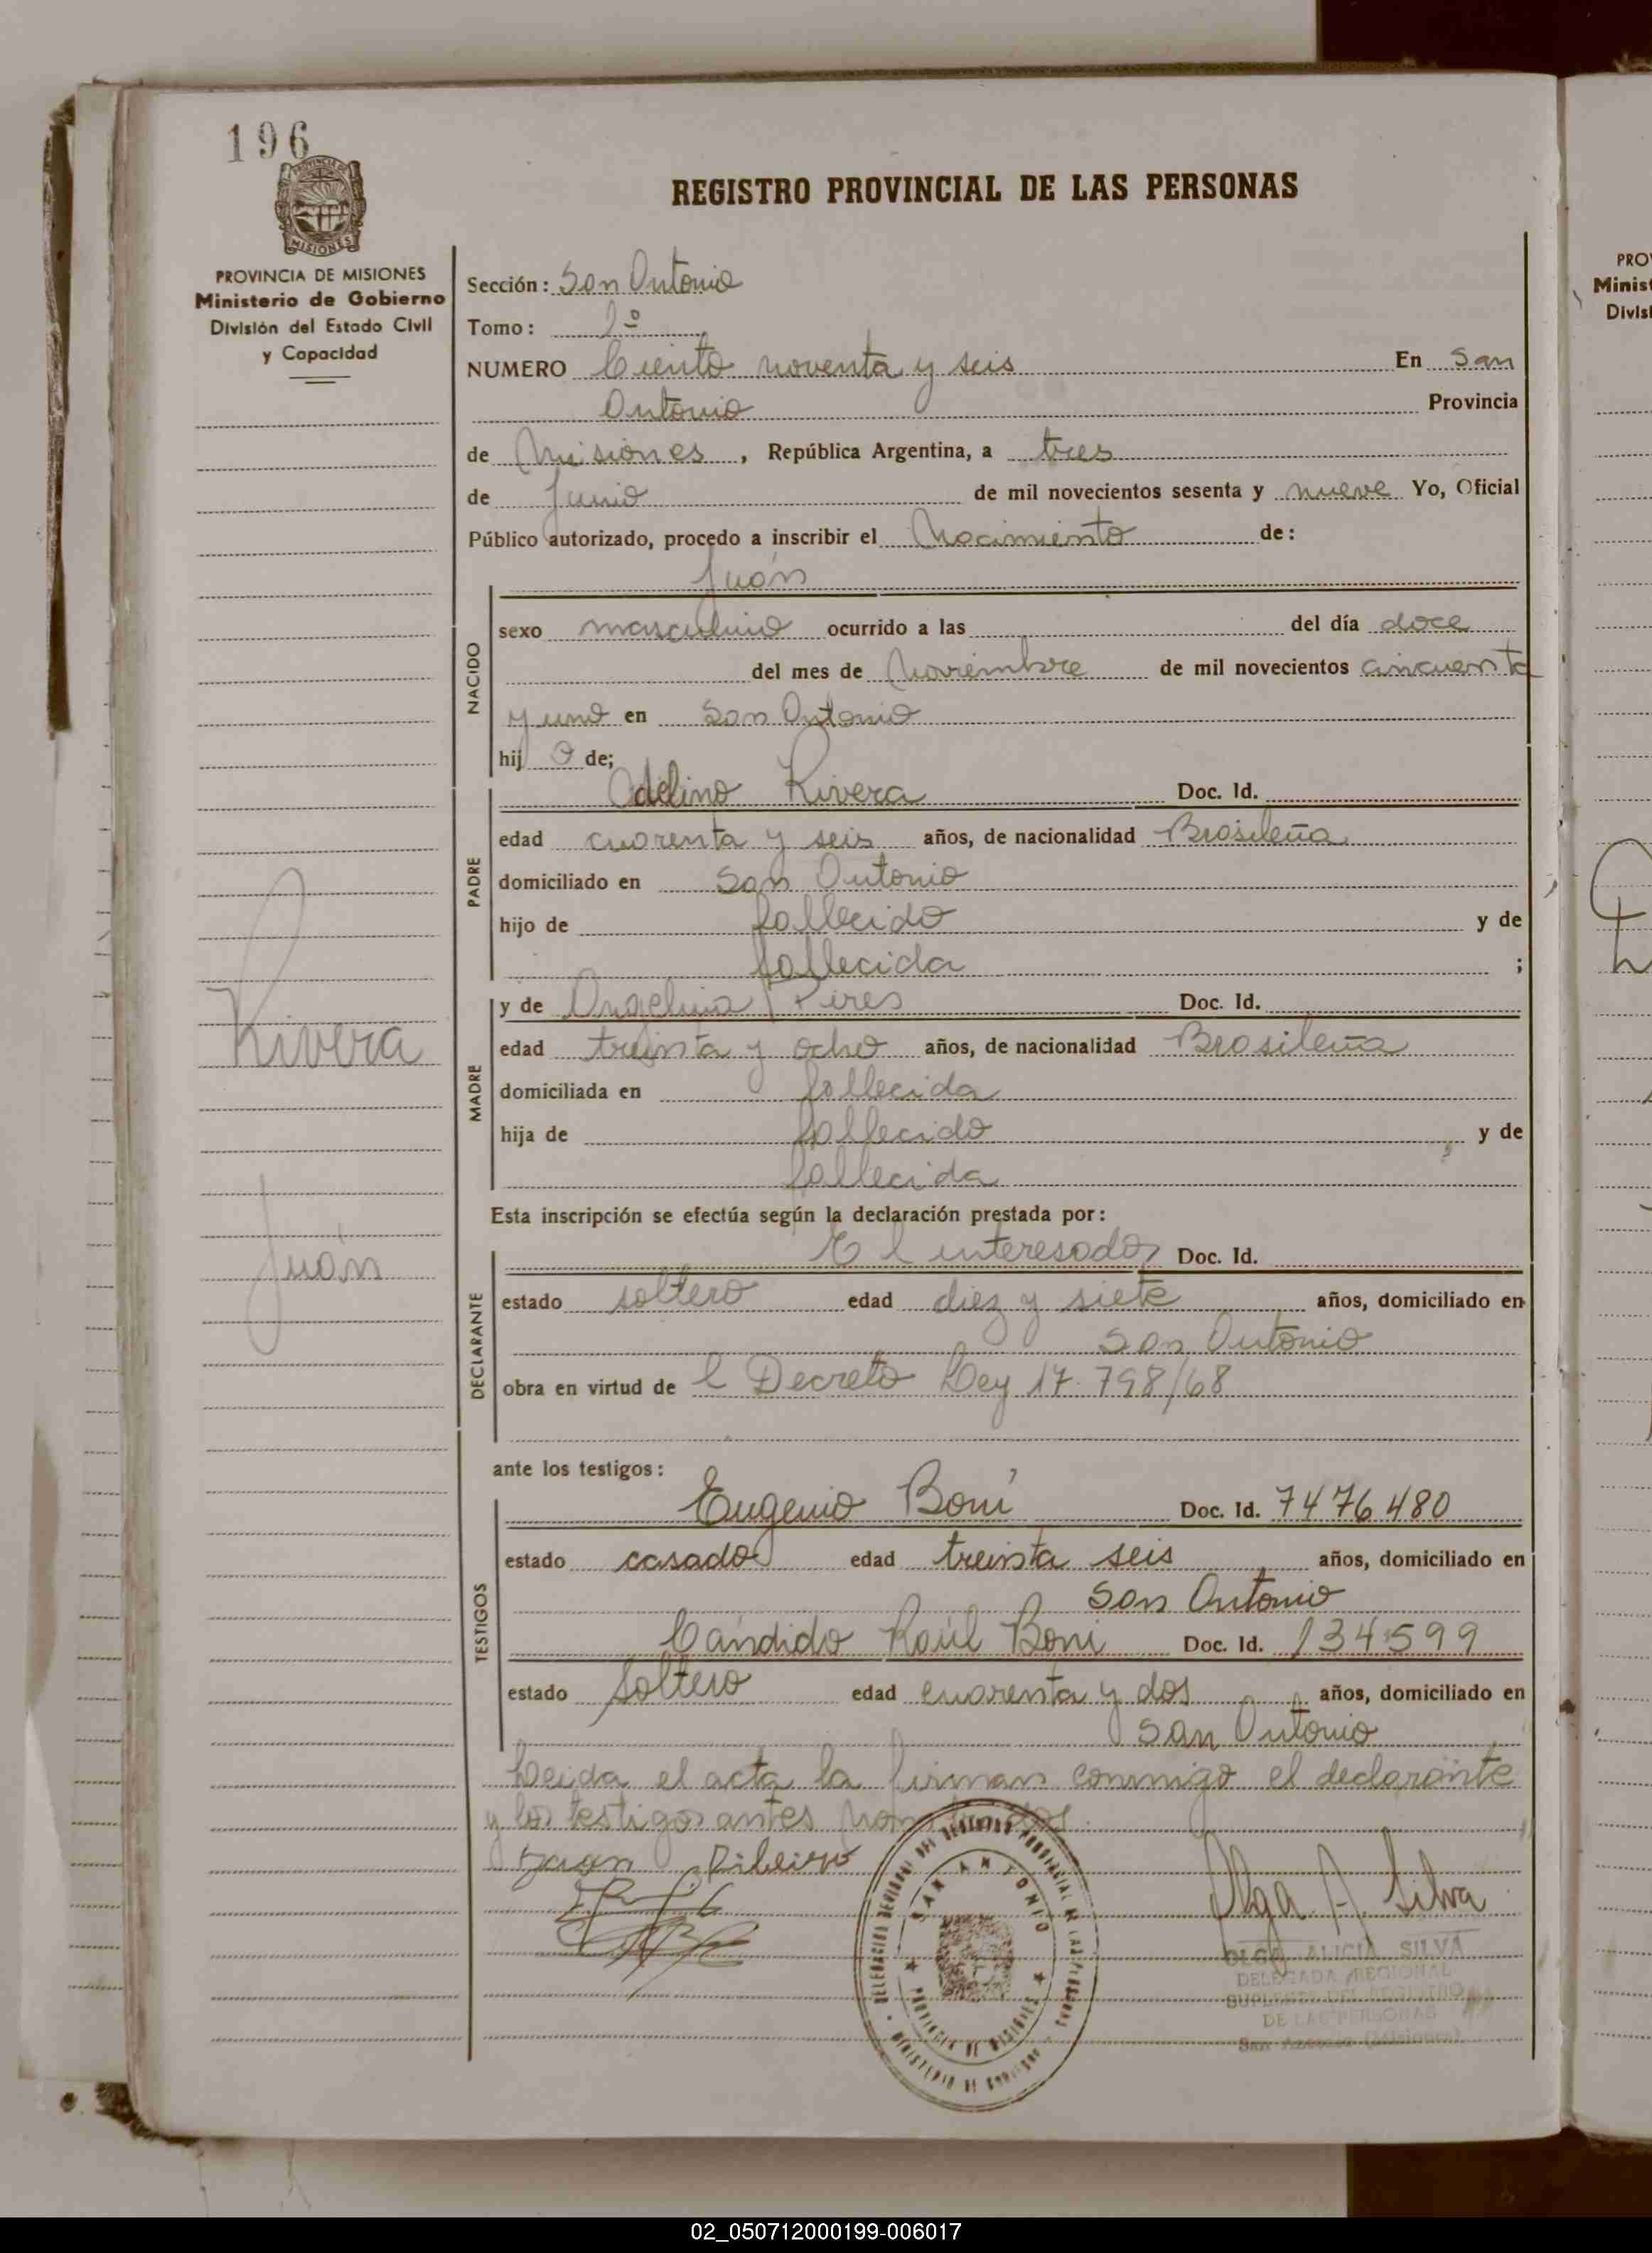 196
PROVINCIA DE
MISIONES
REGISTRO PROVINCIAL DE LAS PERSONAS
PROVINCIA DE MISIONES
Ministerio de Gobierno
División del Estado Civil
y Capacidad
Rivera
Juan
Sección: San Antonio
Tomo:
NUMERO Ciento noventa y seis En San
Antonio Provincia
de Misiones, República Argentina, a tres
de Junio de mil novecientos sesenta y nueve Yo, Oficial
Público autorizado, procedo a inscribir el Nacimiento de:
Juan
NACIDO
sexo masculino ocurrido a las del día doce
del mes de Noviembre de mil novecientos cincuenta
y uno en San Antonio
hijo de;
PADRE
Adelino Rivera Doc. Id.
edad cuarenta y seis años, de nacionalidad Brasileña
domiciliado en San Antonio
hijo de fallecido y de
fallecida ;
MADRE
y de Angelina Pires Doc. Id.
edad treinta y ocho años, de nacionalidad Brasileña
domiciliada en fallecida
hija de fallecido y de
fallecida
Esta inscripción se efectúa según la declaración prestada por:
DECLARANTE
El interesado Doc. Id.
estado soltero edad diez y siete años, domiciliado en
San Antonio
obra en virtud de l Decreto Ley 17.798/68
ante los testigos:
TESTIGOS
Eugenio Boni Doc. Id. 7476480
estado casado edad treinta seis años, domiciliado en
San Antonio
Cándido Raúl Boni Doc. Id. 134599
estado soltero edad cuarenta y dos años, domiciliado en
San Antonio
Leida el acta la firman conmigo el declarante
y los testigos antes nombrados.
Juan Ribeiro
Olga A. Silva
DELEGACION REGIONAL DEL REGISTRO PROVINCIAL DE LAS PERSONAS
SAN ANTONIO
PROVINCIA DE MISIONES
MINISTERIO DE GOBIERNO
OLGA ALICIA SILVA
DELEGADA REGIONAL
SUPLENTE DEL REGISTRO
DE LAS PERSONAS
San Antonio (Misiones)
02_050712000199-006017